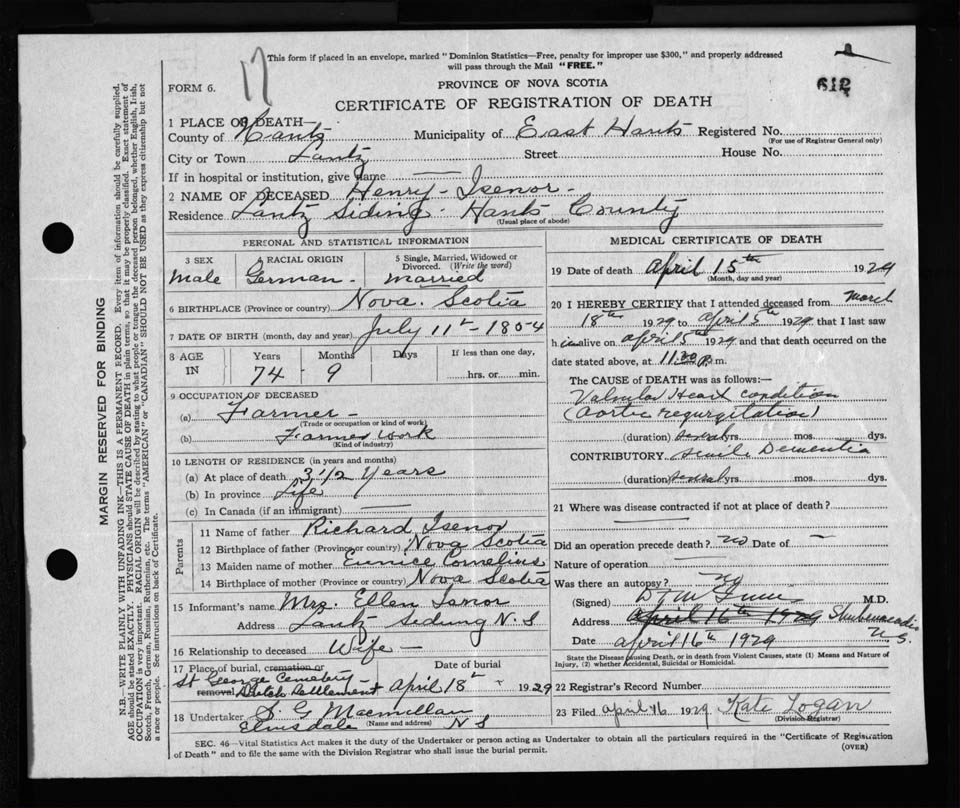 17
This form if placed in an envelope, marked "Dominion Statistics—Free, penalty for improper use $300," and properly addressed
will pass through the Mail "FREE."
FORM 6.
PROVINCE OF NOVA SCOTIA
612
CERTIFICATE OF REGISTRATION OF DEATH
1 PLACE OF DEATH—
County of Hantz Municipality of East Hants Registered No.
(For use of Registrar General only)
City or Town Lantz Street House No.
If in hospital or institution, give name
2 NAME OF DECEASED Henry - Isenor -
Residence Lantz Siding - Hants County
(Usual place of abode)
PERSONAL AND STATISTICAL INFORMATION
3 SEX 4 RACIAL ORIGIN 5 Single, Married, Widowed or
Divorced. (Write the word)
Male German Married
6 BIRTHPLACE (Province or country) Nova. Scotia
7 DATE OF BIRTH (month, day and year) July 11th - 1854
8 AGE Years Months Days If less than one day,
IN 74 - 9 hrs. or min.
9 OCCUPATION OF DECEASED
(a) Farmer -
(Trade or occupation or kind of work)
(b) Farmer work
(Kind of industry)
10 LENGTH OF RESIDENCE (in years and months)
(a) At place of death 3 1/2 Years
(b) In province Life
(c) In Canada (if an immigrant)
Parents
11 Name of father Richard Isenor
12 Birthplace of father (Province or country) Nova Scotia
13 Maiden name of mother Eunice Cornelius
14 Birthplace of mother (Province or country) Nova Scotia
15 Informant's name Mrs. Ellen Isnor
Address Lantz Siding N.S
16 Relationship to deceased Wife -
17 Place of burial, cremation or Date of burial
St George Cemetery -
removal Dutch Settlement April 18th 1929
18 Undertaker S. G Macmillan
Elmsdale (Name and address) N S
MEDICAL CERTIFICATE OF DEATH
19 Date of death April 15th 1929
(Month, day and year)
20 I HEREBY CERTIFY that I attended deceased from March
18th 1929 to April 5th 1929 that I last saw
h im alive on April 5th 1929 and that death occurred on the
date stated above, at 11.20 P. m.
The CAUSE OF DEATH was as follows:—
Valvular Heart condition
(Aortic regurgitation)
(duration) several yrs. mos. dys.
CONTRIBUTORY Senile Dementia
(duration) several yrs. mos. dys.
21 Where was disease contracted if not at place of death?
Did an operation precede death? no Date of —
Nature of operation
Was there an autopsy? no
(Signed) M.D.
Address April 16th 1929 Shubenacadie
N.S.
Date April 16th 1929
State the Disease Causing Death, or in death from Violent Causes, state (1) Means and Nature of
Injury, (2) whether Accidental, Suicidal or Homicidal.
22 Registrar's Record Number
23 Filed April 16 1929 Kate Logan
(Division Registrar)
SEC. 46—Vital Statistics Act makes it the duty of the Undertaker or person acting as Undertaker to obtain all the particulars required in the "Certificate of Registration
of Death" and to file the same with the Division Registrar who shall issue the burial permit.
(OVER)
MARGIN RESERVED FOR BINDING
N.B.—WRITE PLAINLY WITH UNFADING INK—THIS IS A PERMANENT RECORD. Every item of information should be carefully supplied.
AGE should be stated EXACTLY. PHYSICIANS should STATE CAUSE OF DEATH in plain terms, so that it may be properly classified. Exact statement of
OCCUPATION is very important. RACIAL ORIGIN will be described by stating to what people or tongue the deceased person belonged, whether English, Irish,
Scotch, French, German, Russian, Ruthenian, etc. The terms "AMERICAN" or "CANADIAN" SHOULD NOT BE USED as they express citizenship but not
a race or people. See instructions on back of Certificate.